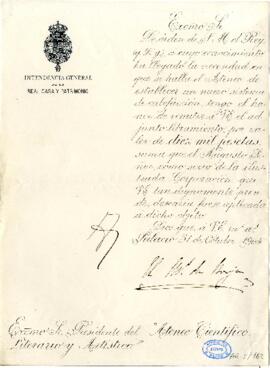 INTENDENCIA GENERAL
DE LA
REAL CASA Y PATRIMONIO
Excmo Sr.
De órden de S. M. el Rey
q. D. g. a cuyo conocimiento
ha llegado la necesidad en
que se halla el Ateneo de
establecer un nuevo sistema
de calefacción, tengo el ho-
nor de remitir a V.E. el ad-
junto libramiento, por va-
lor de diez mil pesetas,
suma que el Augusto Se-
ñor, como socio de la ilus-
trada Corporación que
V.E. tan dignamente presi-
de, desearía fuese aplicada
a dicho objeto.
Dios gue. a V.E. m. a.
Palacio 31 de Octubre
El
Excmo Sr. Presidente del "Ateneo Científico
Literario y Artístico"